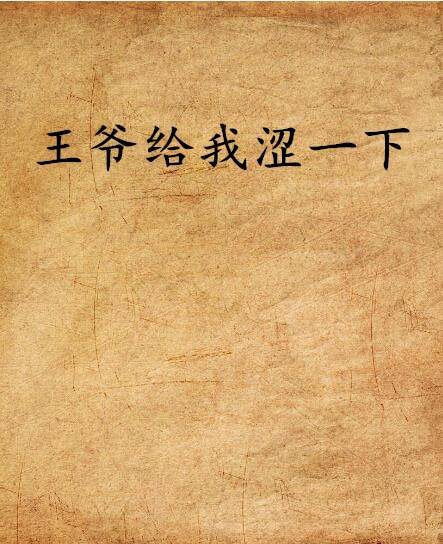 王爷给我涩一下